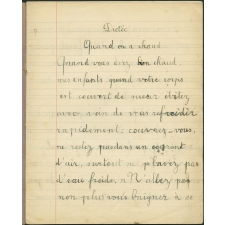 Dictée
Quand on a chaud
Quand vous avez bien chaud
mes enfants quand votre corps
est couvert de sueur évitez
avec soin de vous refroidir
rapidement, couvrez-vous,
ne restez pas dans un courant
d'air, surtout ne buvez pas
d'eau froide. N'allez pas
non plus vous baigner à ce